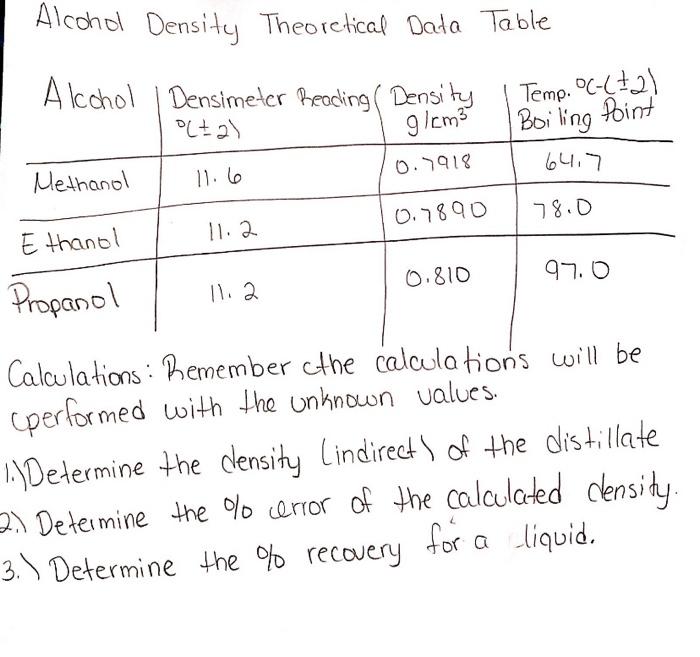 Alcohol Density Theoretical Data Table
Alcohol Densimeter Reading( Density Temp. °C-(±2)
°(±2) g/cm³ Boiling Point
Methanol 11.6 0.7918 64.7
Ethanol 11.2 0.7890 78.0
Propanol 11.2 0.810 97.0
Calculations: Remember the calculations will be
performed with the unknown values.
1.) Determine the density (indirect) of the distillate
2.) Determine the % error of the calculated density.
3.) Determine the % recovery for a liquid.